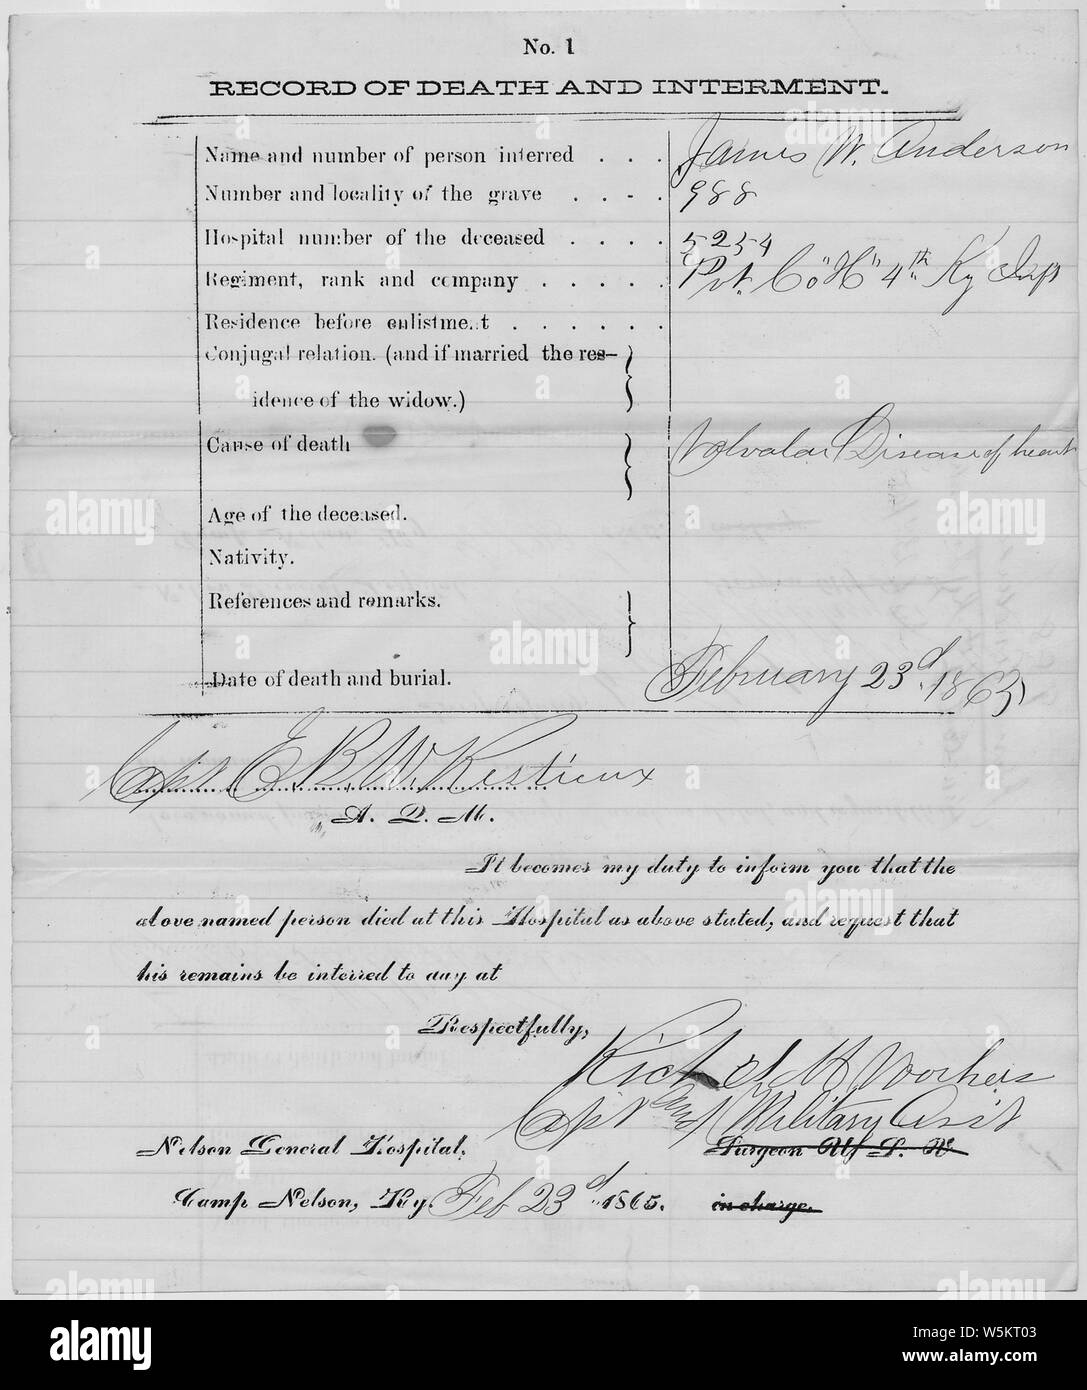 No. 1
RECORD OF DEATH AND INTERMENT.
Name and number of person interred . . . James W. Anderson
Number and locality of the grave . . - . 988
Hospital number of the deceased . . . . 5254
Regiment, rank and company . . . . . Pvt. Co "H" 4th Ky Inft
Residence before enlistme.t . . . . . .
Conjugal relation. (and if married the res-
idence of the widow.)
Cause of death Valvular Disease of heart
Age of the deceased.
Nativity.
References and remarks.
Date of death and burial. February 23d 1865
Capt E B W Restieux
A. Q. M.
It becomes my duty to inform you that the
above named person died at this Hospital as above stated, and request that
his remains be interred to day at
Respectfully,
Capt Military Asst
Nelson General Hospital, Surgeon U S. V
Camp Nelson, Ky. Feb 23d 1865. in charge.
alamy
Image ID: W5KT03
www.alamy.com